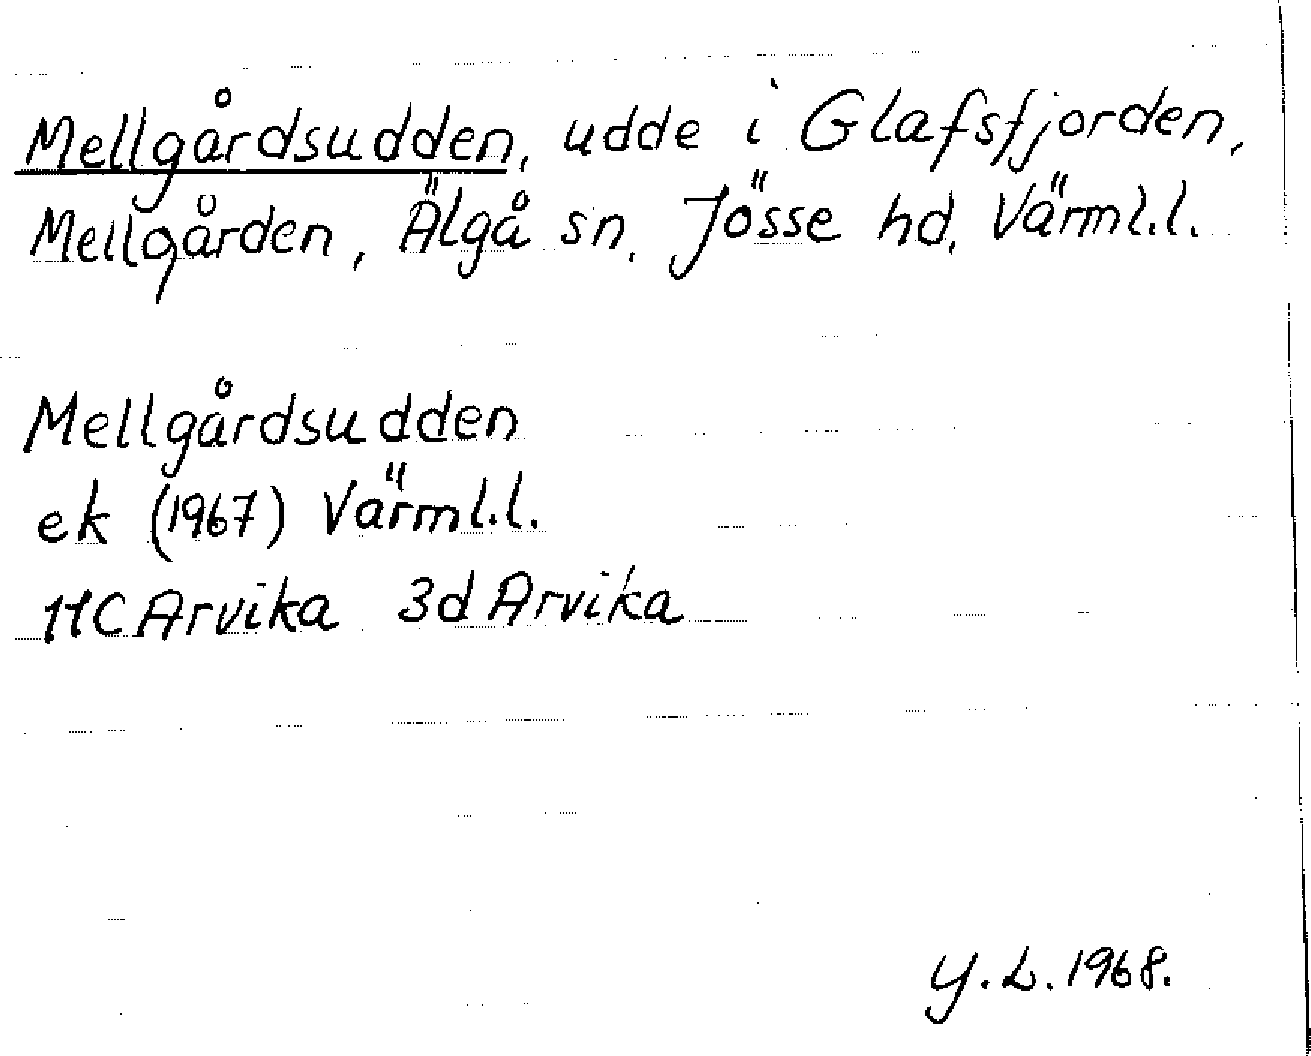 Mellgårdsudden, udde i Glafsfjorden,
Mellgården, Älgå sn, Jösse hd, Värml.l.
Mellgårdsudden
ek (1967) Värml.l.
11C Arvika 3d Arvika
Y.L. 1968.